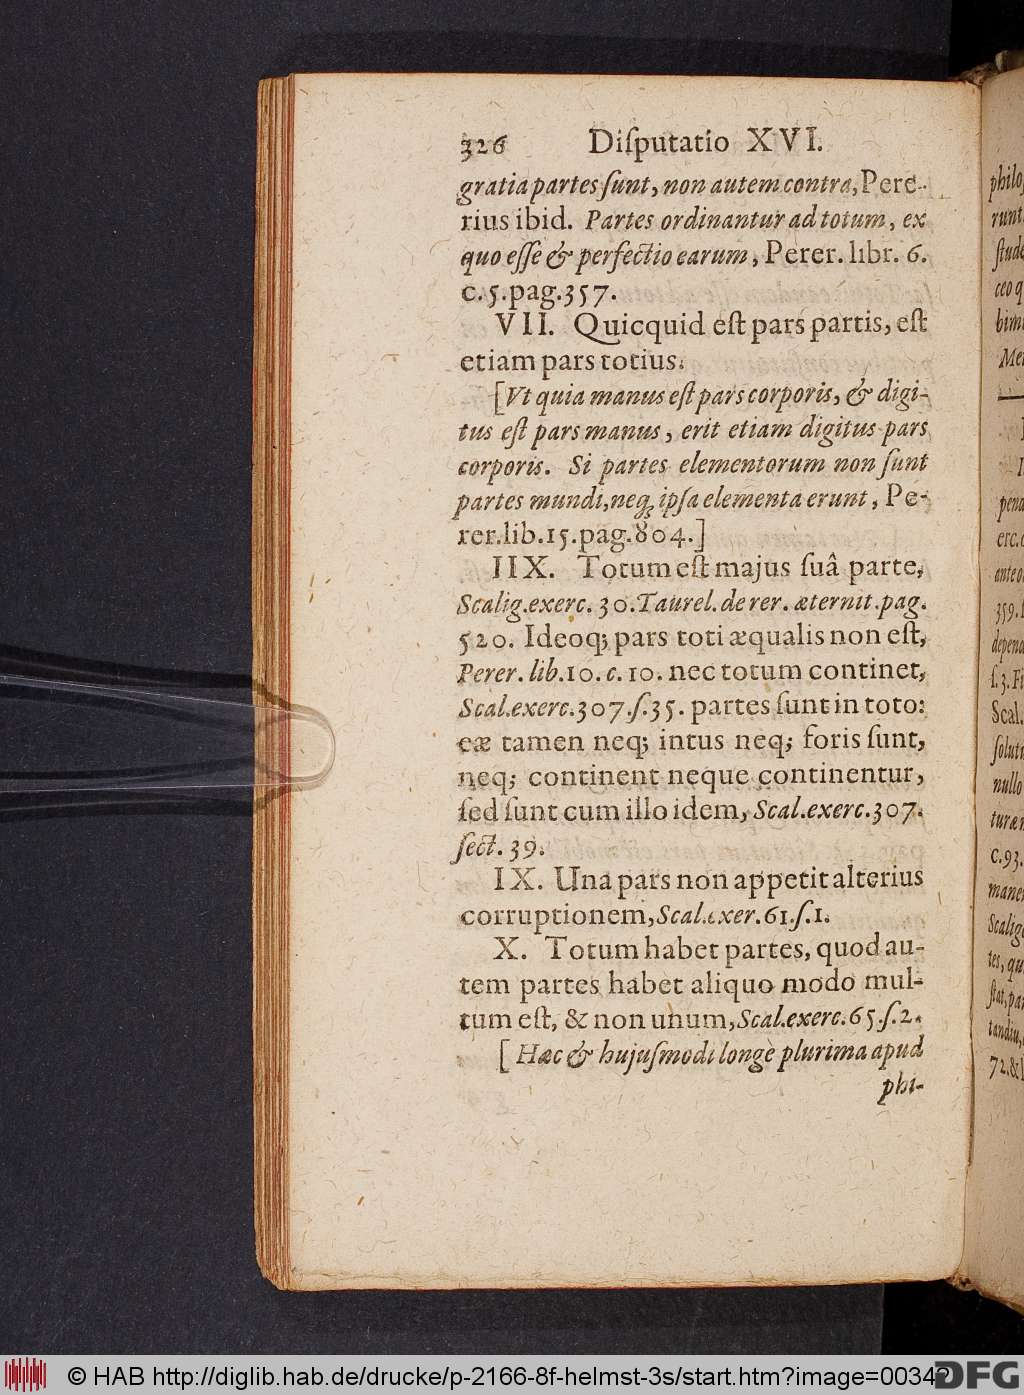 326 Diſputatio XVI.
gratia partes ſunt, non autem contra, Pere-
rius ibid. Partes ordinantur ad totum, ex
quo eſſe & perfectio earum, Perer. libr. 6.
c. 5. pag. 357.
VII. Quicquid eſt pars partis, eſt
etiam pars totius.
[Vt quia manus eſt pars corporis, & digi-
tus eſt pars manus, erit etiam digitus pars
corporis. Si partes elementorum non ſunt
partes mundi, neq; ipſa elementa erunt, Pe-
rer. lib. 15. pag. 804.]
IIX. Totum eſt majus ſuâ parte,
Scalig. exerc. 30. Taurel. de rer. æternit. pag.
520. Ideoq; pars toti æqualis non eſt,
Perer. lib. 10. c. 10. nec totum continet,
Scal. exerc. 307. ſ. 35. partes ſunt in toto:
eæ tamen neq; intus neq; foris ſunt,
neq; continent neque continentur,
ſed ſunt cum illo idem, Scal. exerc. 307.
ſect. 39.
IX. Una pars non appetit alterius
corruptionem, Scal. exer. 61. ſ. 1.
X. Totum habet partes, quod au-
tem partes habet aliquo modo mul-
tum eſt, & non unum, Scal. exerc. 65. ſ. 2.
[Hæc & hujuſmodi longè plurima apud
phi-
runt.
ceo q
Scal.
nullo
c. 93.
72. &
© HAB http://diglib.hab.de/drucke/p-2166-8f-helmst-3s/start.htm?image=00342
DFG